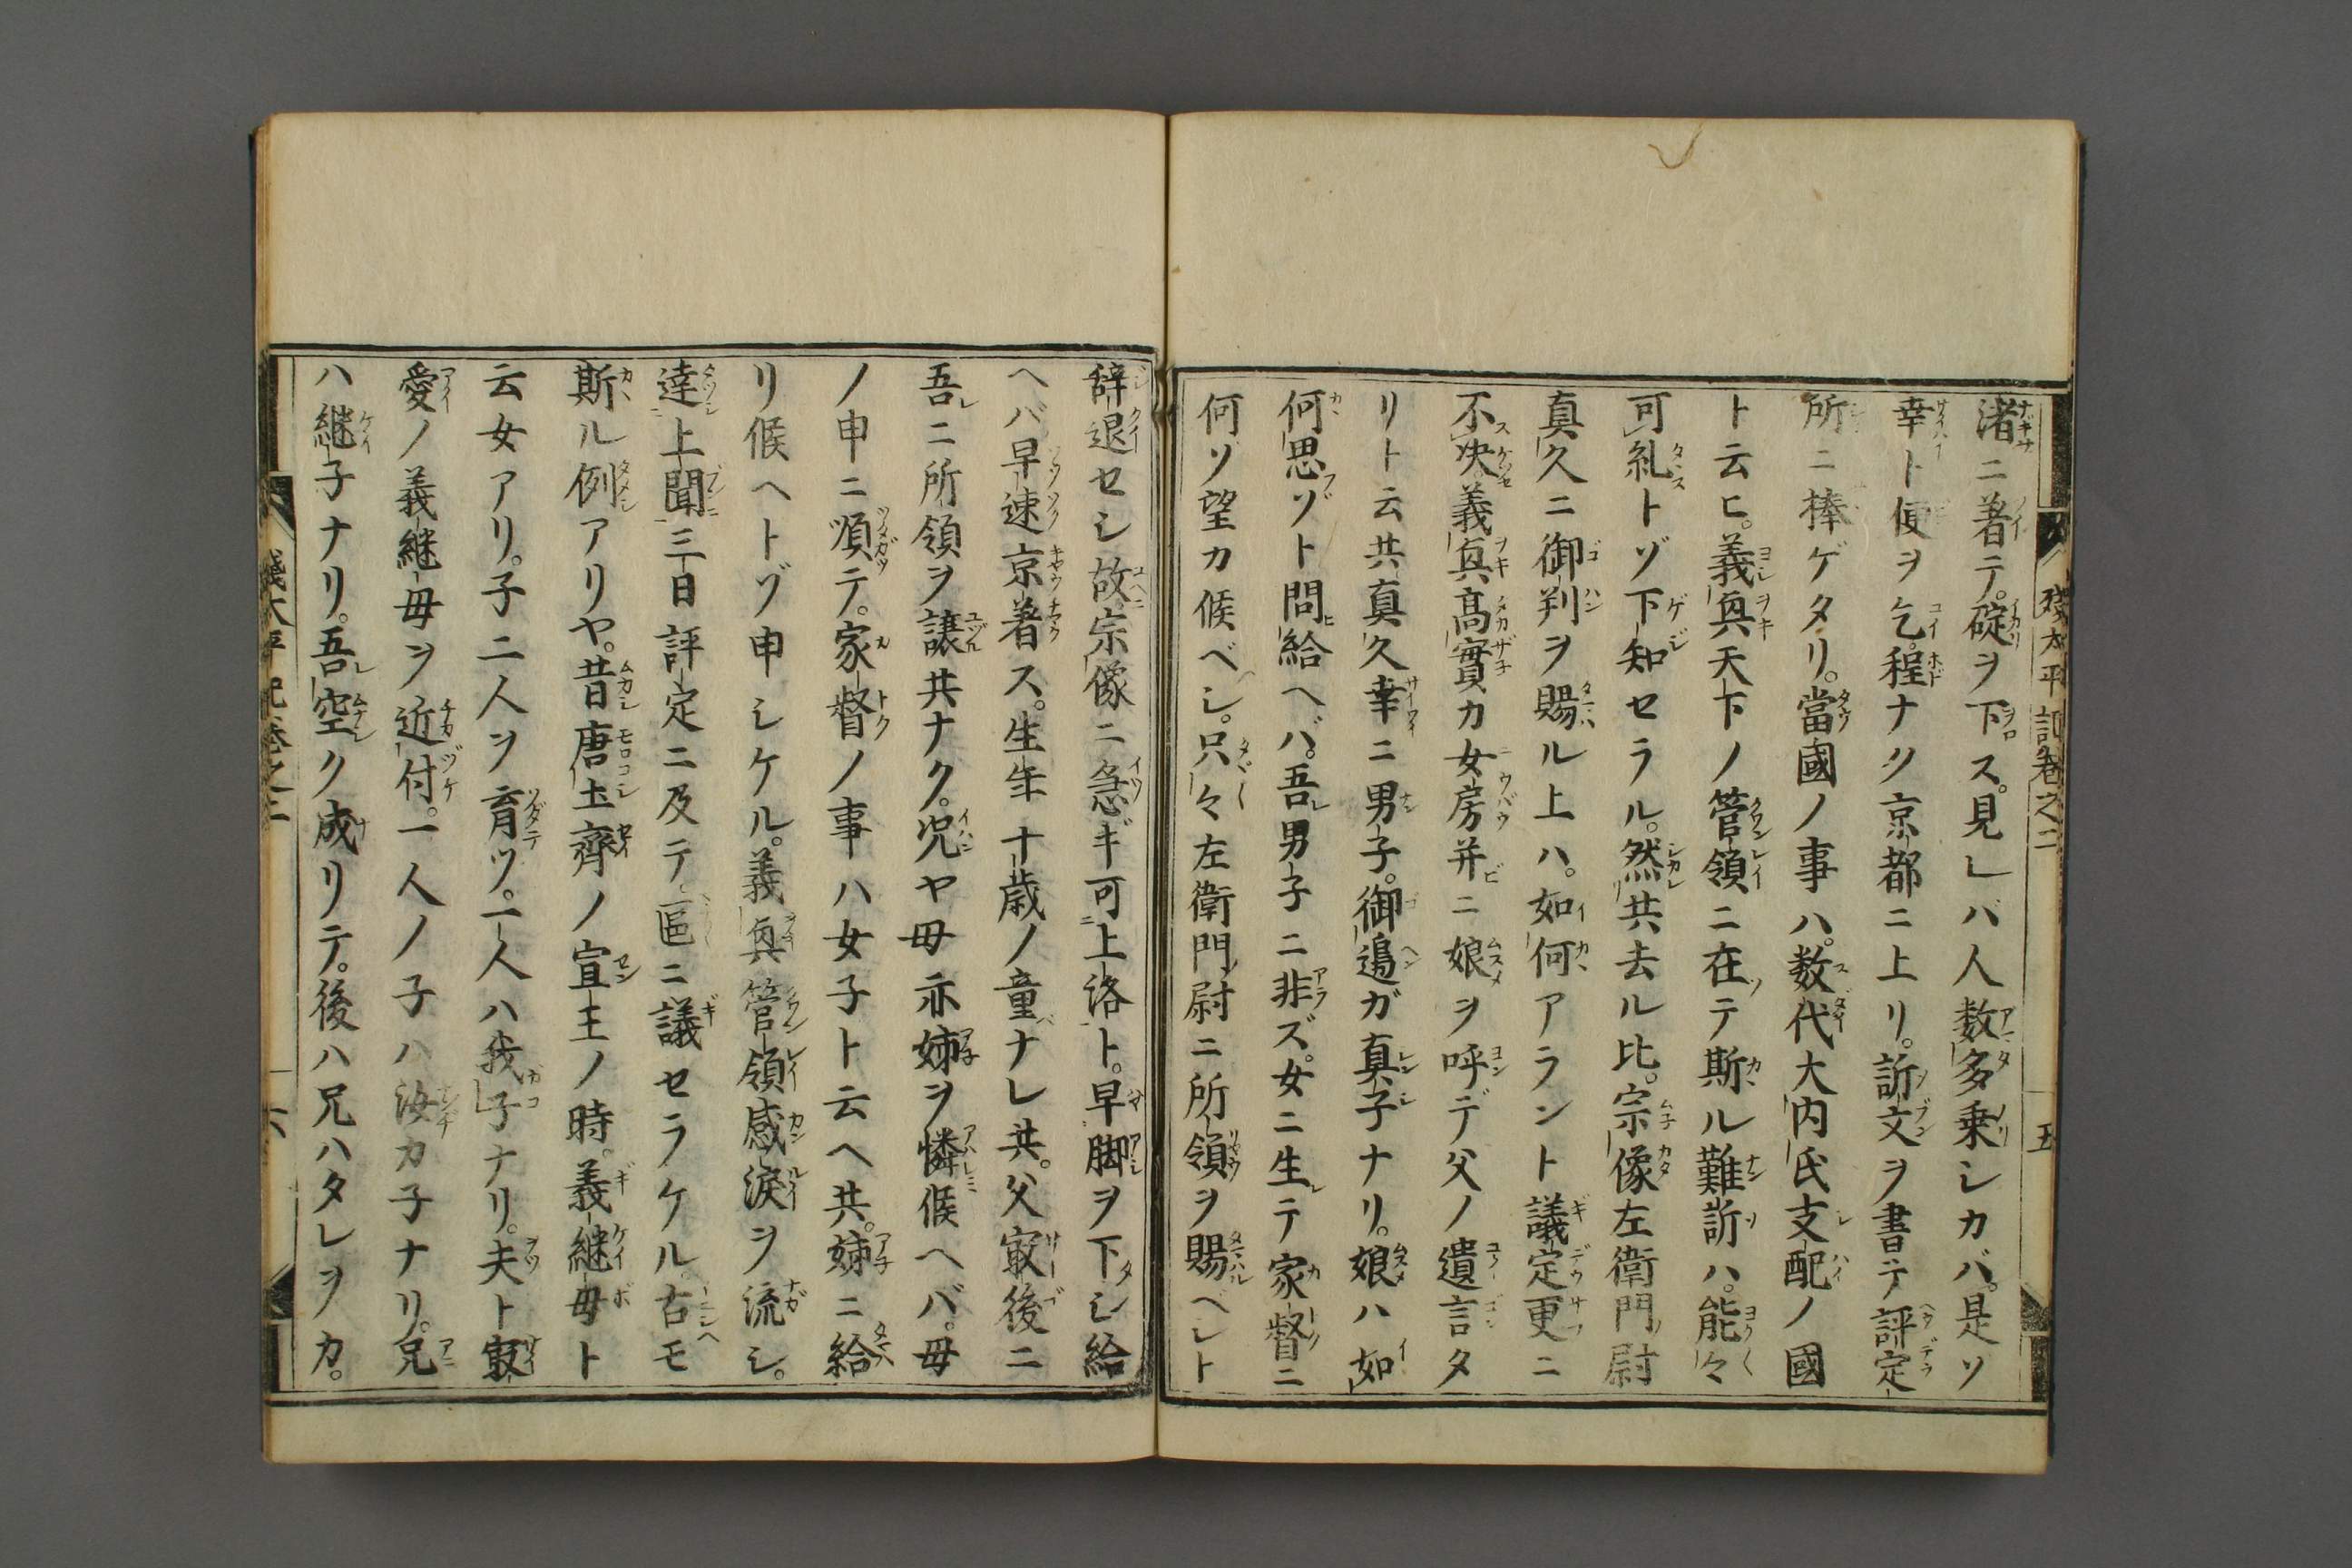 残太平記卷之二
五
渚ニ着テ。碇ヲ下ス。見レバ人数多乗シカバ。是ソ
幸ト便ヲ乞。程ナク京都ニ上リ。訴文ヲ書テ評定
所ニ棒ゲタリ。當國ノ事ハ。数代大内氏支配ノ國
ト云ヒ。義興天下ノ管領ニ在テ斯ル難訴ハ。能々
可糺トゾ下知セラル。然共去ル比。宗像左衛門尉
真久ニ御判ヲ賜ル上ハ。如何アラント議定更ニ
不决。義興高實カ女房并ニ娘ヲ呼デ父ノ遺言タ
リト云共真久幸ニ男子。御邉ガ真子ナリ。娘ハ如
何思ゾト問給ヘバ。吾男子ニ非ズ。女ニ生テ家督ニ
何ソ望カ候ベシ。只々左衛門尉ニ所領ヲ賜ベシト
辞退セシ故。宗像ニ急ギ可上洛ト。早脚ヲ下シ給
ヘバ早速京着ス。生年十歳ノ童ナレ共。父寂後ニ
吾ニ所領ヲ譲共ナク。况ヤ母亦姉ヲ憐候ヘバ。母
ノ申ニ順テ。家督ノ事ハ女子ト云ヘ共。姉ニ給
リ候ヘトゾ申シケル。義興管領感涙ヲ流シ。
達上聞三日評定ニ及テ區ニ議セラケル。古モ
斯ル例アリヤ。昔唐土齊ノ宣王ノ時。義継母ト
云女アリ。子二人ヲ育ツ。一人ハ我子ナリ。夫ト寂
愛ノ義継母ヲ近付。一人ノ子ハ汝カ子ナリ。兄
ハ継子ナリ。吾空ク成リテ。後ハ兄ハタレヲカ。
残太平記卷之二
六